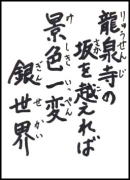 龍泉寺の
りゅうせんじ
坂を越えれば
さか こ
景色一変
けしきいっぺん
銀世界
ぎんせかい